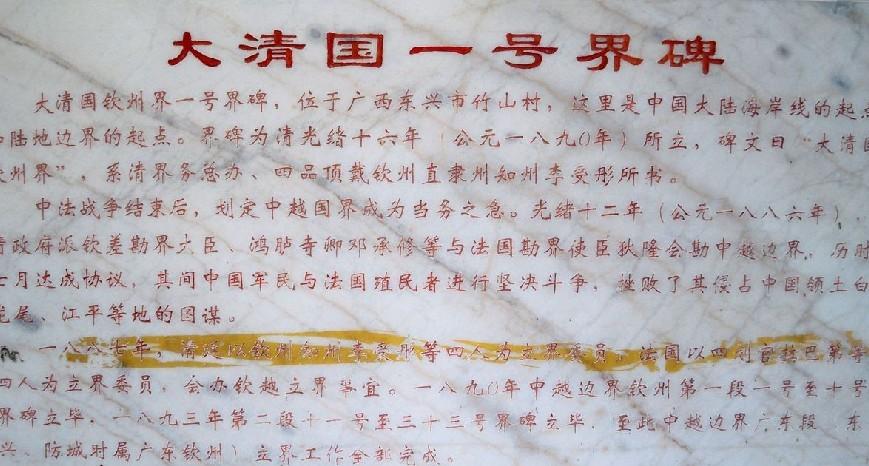 大清国一号界碑
大清国钦州界一号界碑，位于广西东兴市竹山村，这里是中国大陆海岸线的起点
陆地边界的起点。界碑为清光绪十六年（公元一八九〇年）所立，碑文曰“大清国
州界”，系清界务总办、四品顶戴钦州直隶州知州李受彤所书。
中法战争结束后，划定中越国界成为当务之急。光绪十二年（公元一八八六年），
政府派钦差勘界大臣、鸿胪寺卿邓承修等与法国勘界使臣狄隆会勘中越边界。历时
七月达成协议，其间中国军民与法国殖民者进行坚决斗争，挫败了其侵占中国领土白
龙尾、江平等地的图谋。
一八八七年，清廷以钦州知州李受彤等四人为立界委员，法国以四划官拉巴第等
四人为立界委员，会办钦越立界事宜。一八九〇年中越边界钦州第一段一号至十号
界碑立毕，一八九三年第二段十一号至三十三号界碑立毕，至此中越边界广东段（东
兴、防城时属广东钦州）立界工作全部完成。